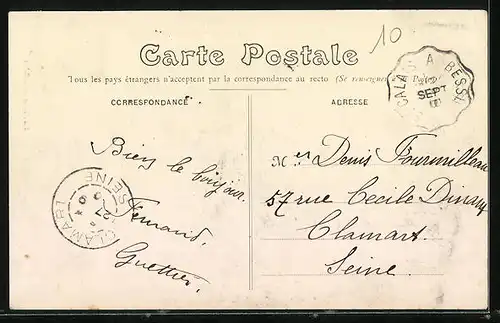 10
Carte Postale
Tous les pays étrangers n'acceptent par la correspondance au recto (Se renseigner à la Poste)
CORRESPONDANCE
ADRESSE
CALAIS A BESS
SEPT
Bien le bonjour.
Fernand,
Guettier,
Denis Fourmilleau
57 rue Cecile Dinant
Clamart.
Seine.
CLAMART
SEINE
27